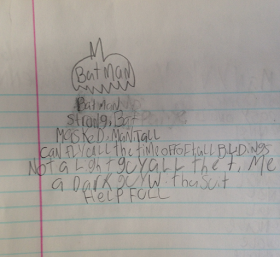 BatMan
Batman
Strong, Bat
MaskeD, ManTall
Can Fly all the time OFF OF tall BLDINGS
Not a Light guy all the t, Me
a Dark guy w the suit
HeLPFULL